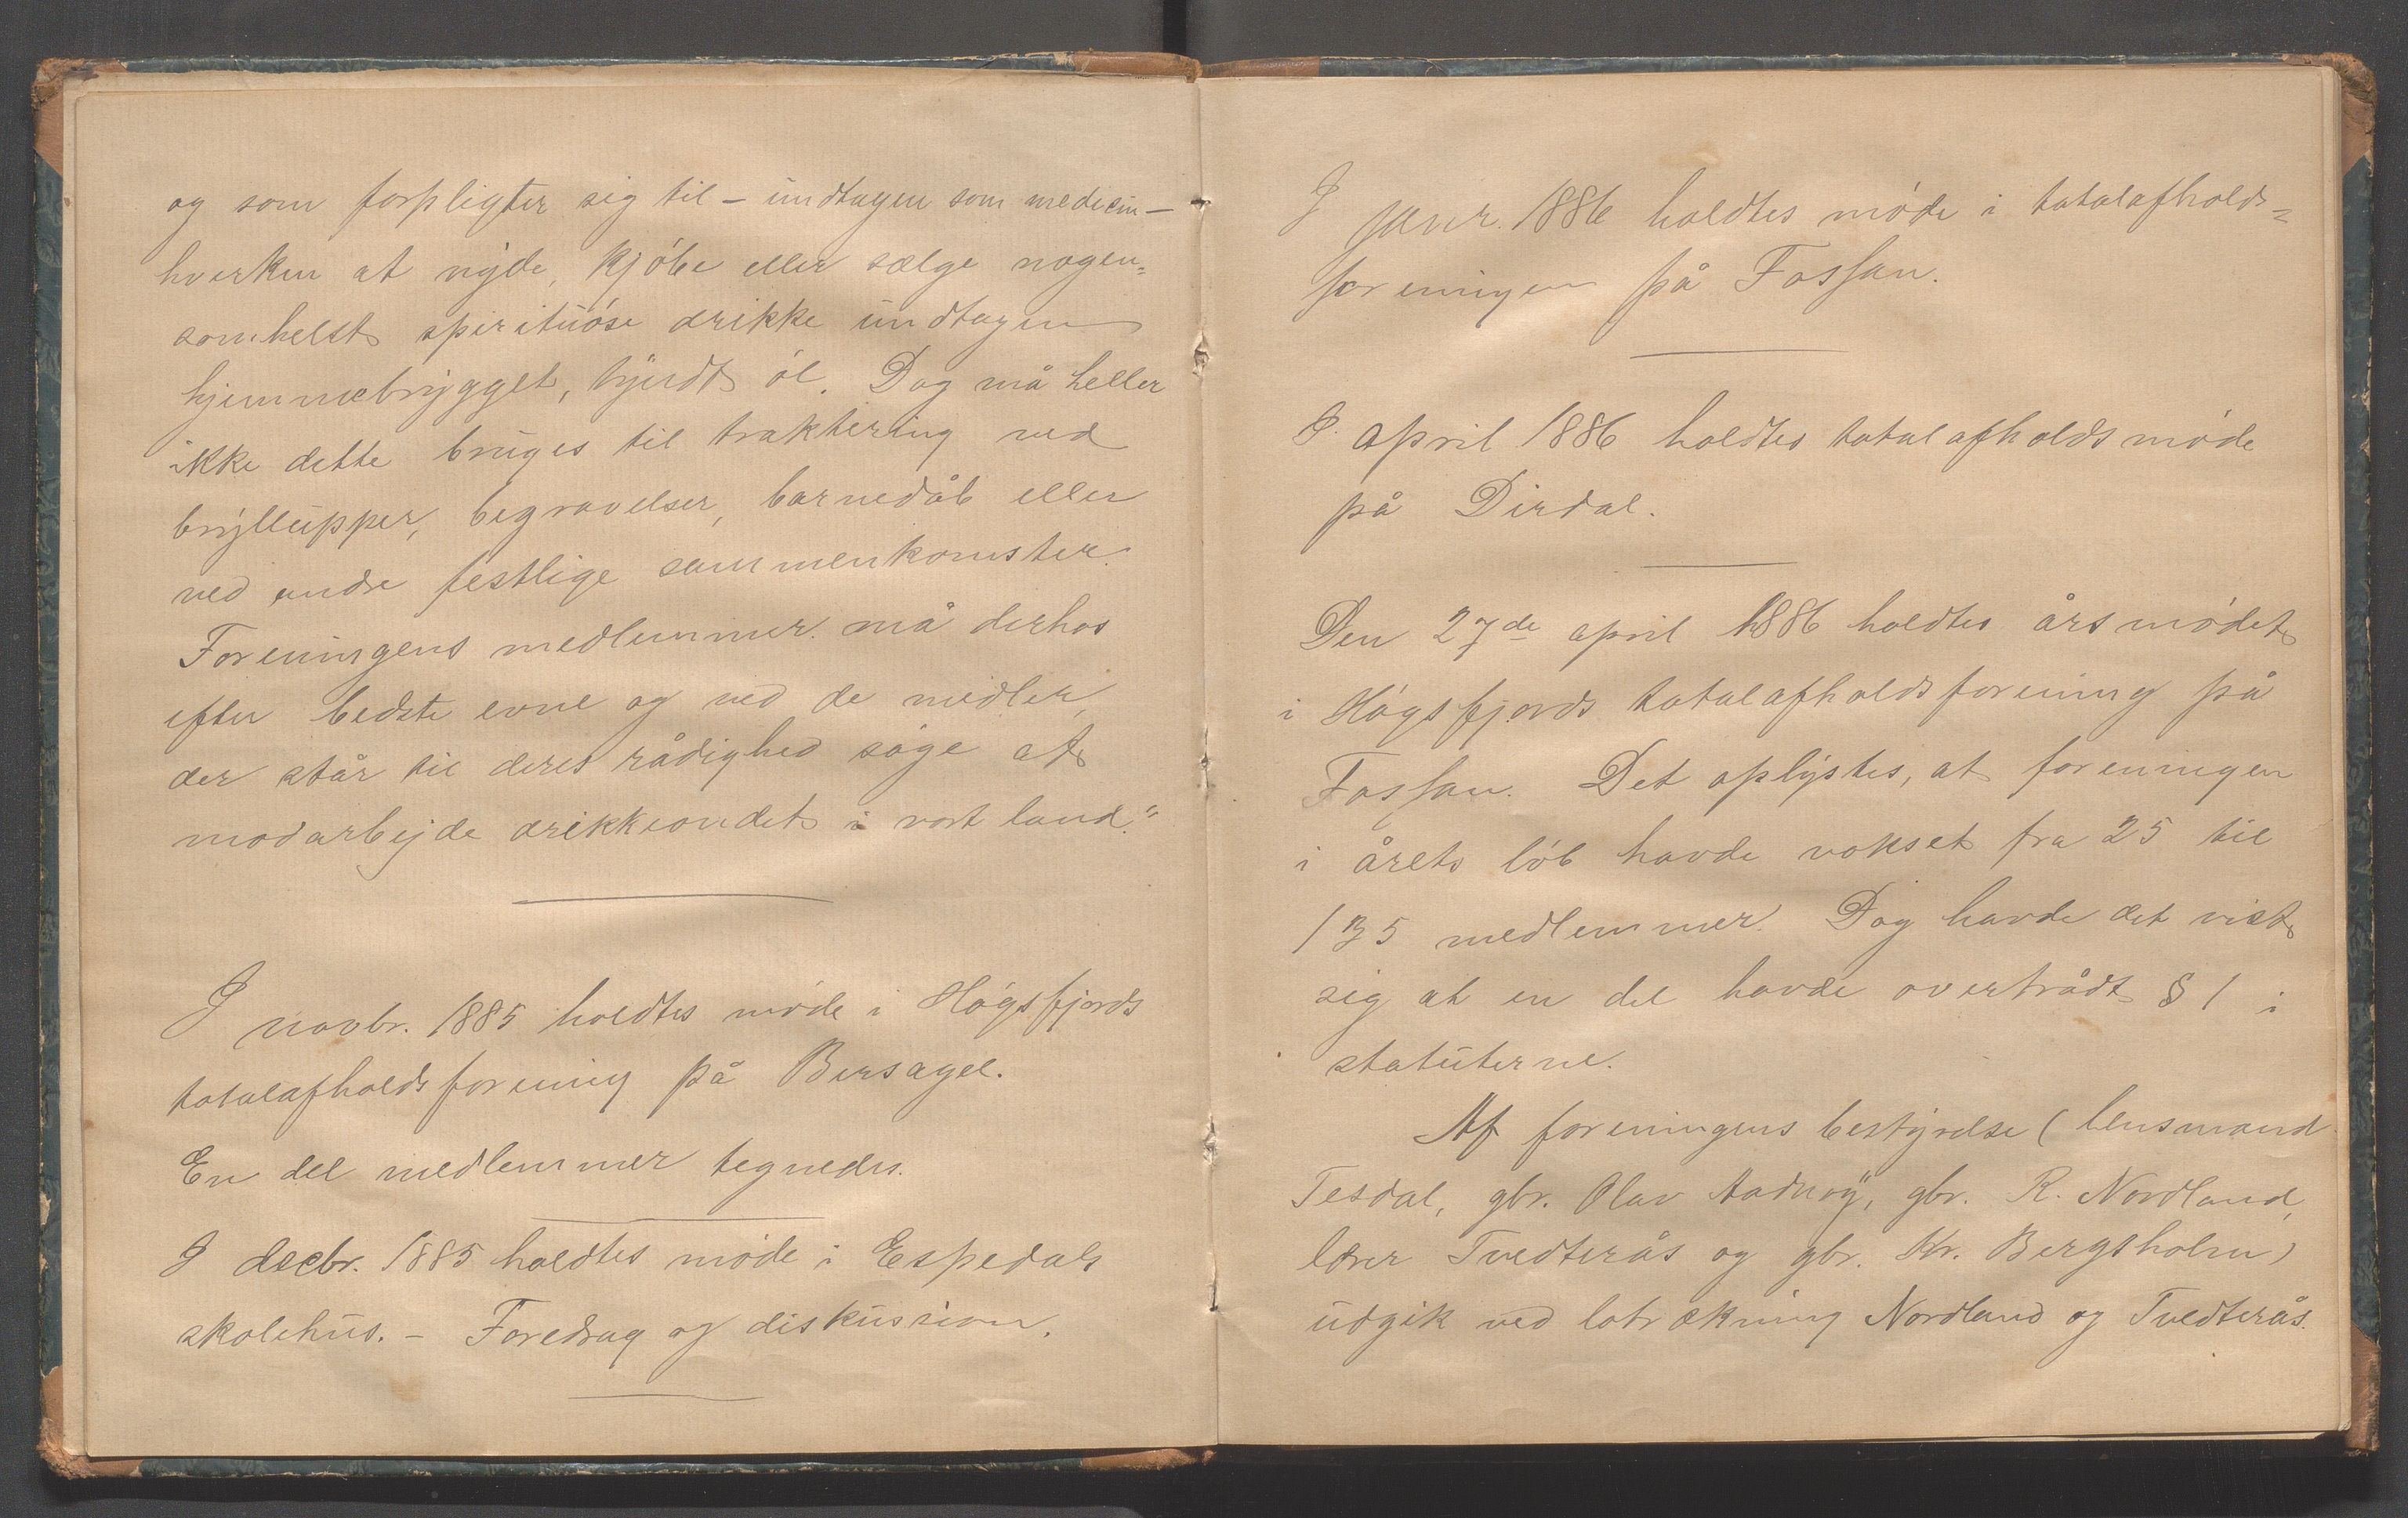 og som forpligter sig til – undtagen som medicin –
hverken at nyde, kjöbe eller sælge nogen=
somhelst spirituöse drikke undtagen
hjemmebrygget, tyndt öl. Dog må heller
ikke dette bruges til traktering ved
bryllupper, begravelser, barnedåb eller
ved andre festlige sammenkomster.
Foreningens medlemmer må derhos
efter bedste evne og ved de midler,
der står til deres rådighed söge at
modarbejde drikkeondet i vort land."
I novbr. 1885 holdtes möde i Högsfjords
totalafholdsforening på Bersagel.
En del medlemmer tegnedes.
I decbr. 1885 holdtes möde i Espedals
skolehus. – Foredrag og diskussion.
I janr. 1886 holdtes möde i totalafholds=
foreningen på Fossan.
I april 1886 holdtes totalafholdsmöde
på Dirdal.
Den 27de april 1886 holdtes årsmödet
i Högsfjords totalafholdsforening på
Fossan. Det oplystes, at foreningen
i årets löb havde vokset fra 25 til
135 medlemmer. Dog havde det vist
sig at en del havde overtrådt § 1 i
statuterne.
Af foreningens bestyrelse (lensmand
Tesdal, gbr. Olav Aadnöy, gbr. R. Nordland,
lærer Tvedterås og gbr. Kr. Bergsholm)
udgik ved lotrækning Nordland og Tvedterås.